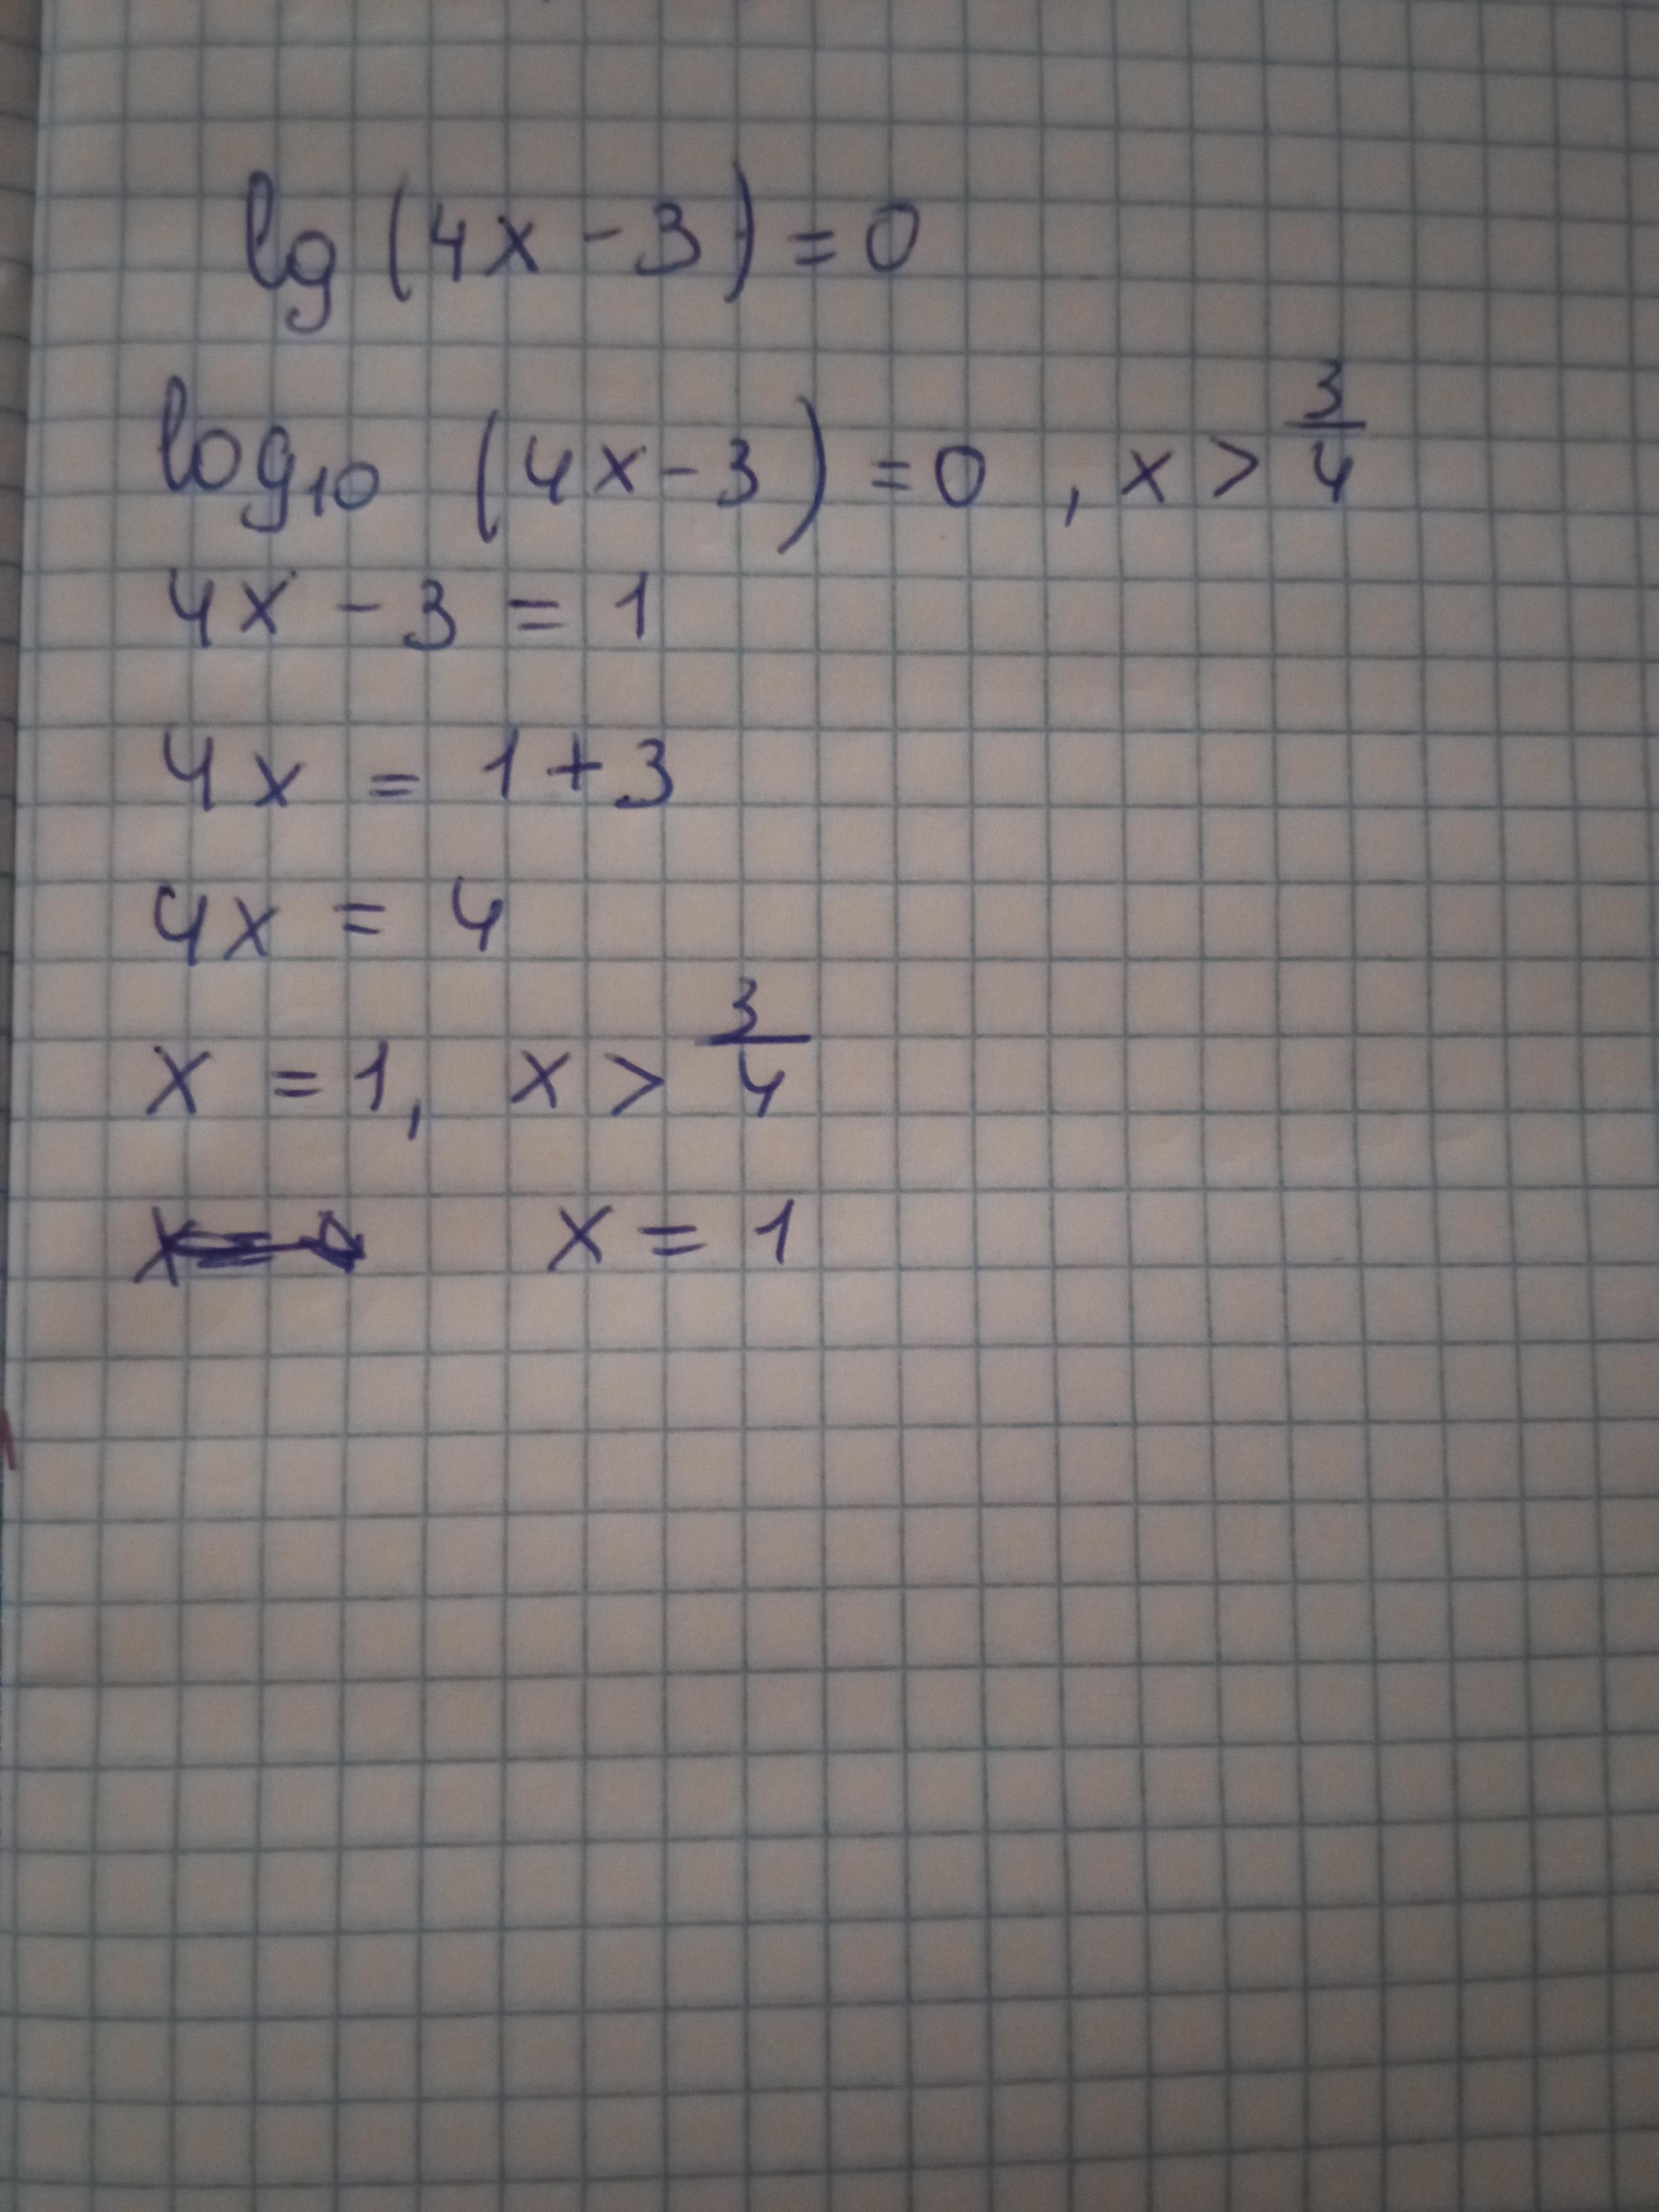 lg (4x - 3) = 0
log₁₀ (4x - 3) = 0 , x > 3/4
4x - 3 = 1
4x = 1 + 3
4x = 4
x = 1, x > 3/4
x = 1